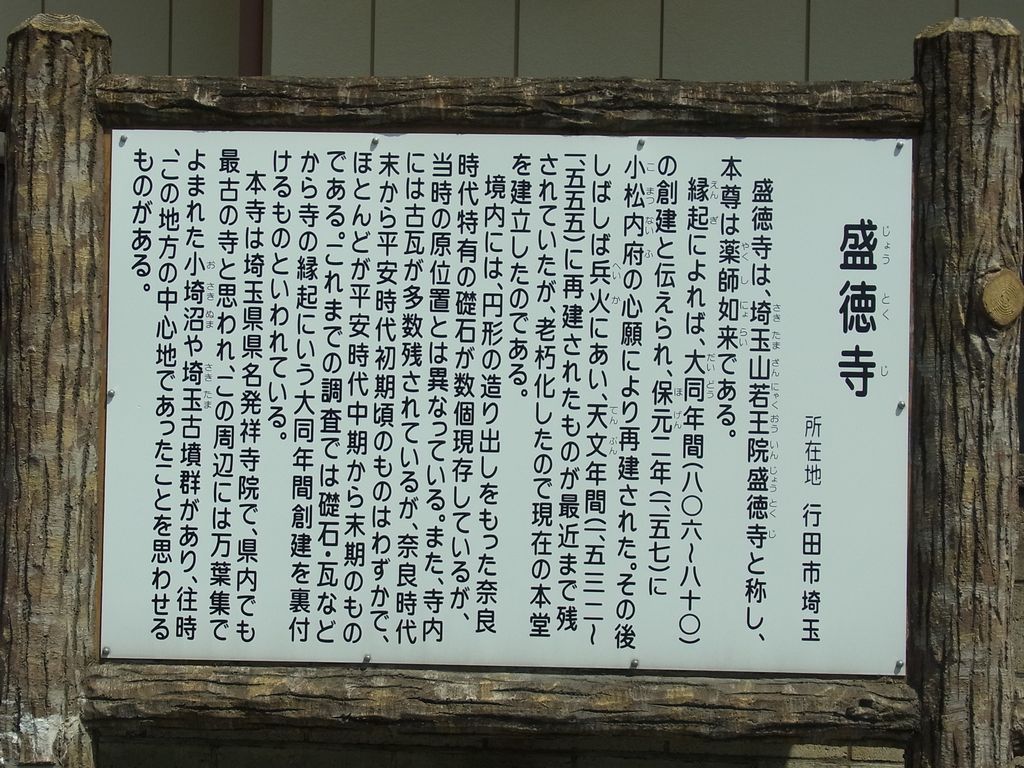 盛徳寺
所在地　行田市埼玉
盛徳寺は、埼玉山若王院盛徳寺と称し、
本尊は薬師如来である。
縁起によれば、大同年間（八〇六～八一〇）
の創建と伝えられ、保元二年（一一五七）に
小松内府の心願により再建された。その後
しばしば兵火にあい、天文年間（一五三二～
一五五五）に再建されたものが最近まで残
されていたが、老朽化したので現在の本堂
を建立したのである。
境内には、円形の造り出しをもった奈良
時代特有の礎石が数個現存しているが、
当時の原位置とは異なっている。また、寺内
には古瓦が多数残されているが、奈良時代
末から平安時代初期頃のものはわずかで、
ほとんどが平安時代中期から末期のもの
である。これまでの調査では礎石・瓦など
から寺の縁起にいう大同年間創建を裏付
けるものといわれている。
本寺は埼玉県県名発祥寺院で、県内でも
最古の寺と思われ、この周辺には万葉集で
よまれた小埼沼や埼玉古墳群があり、往時
、この地方の中心地であったことを思わせる
ものがある。